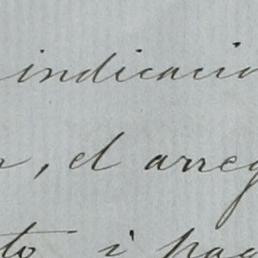 indicacio
, el arreg
to i pag